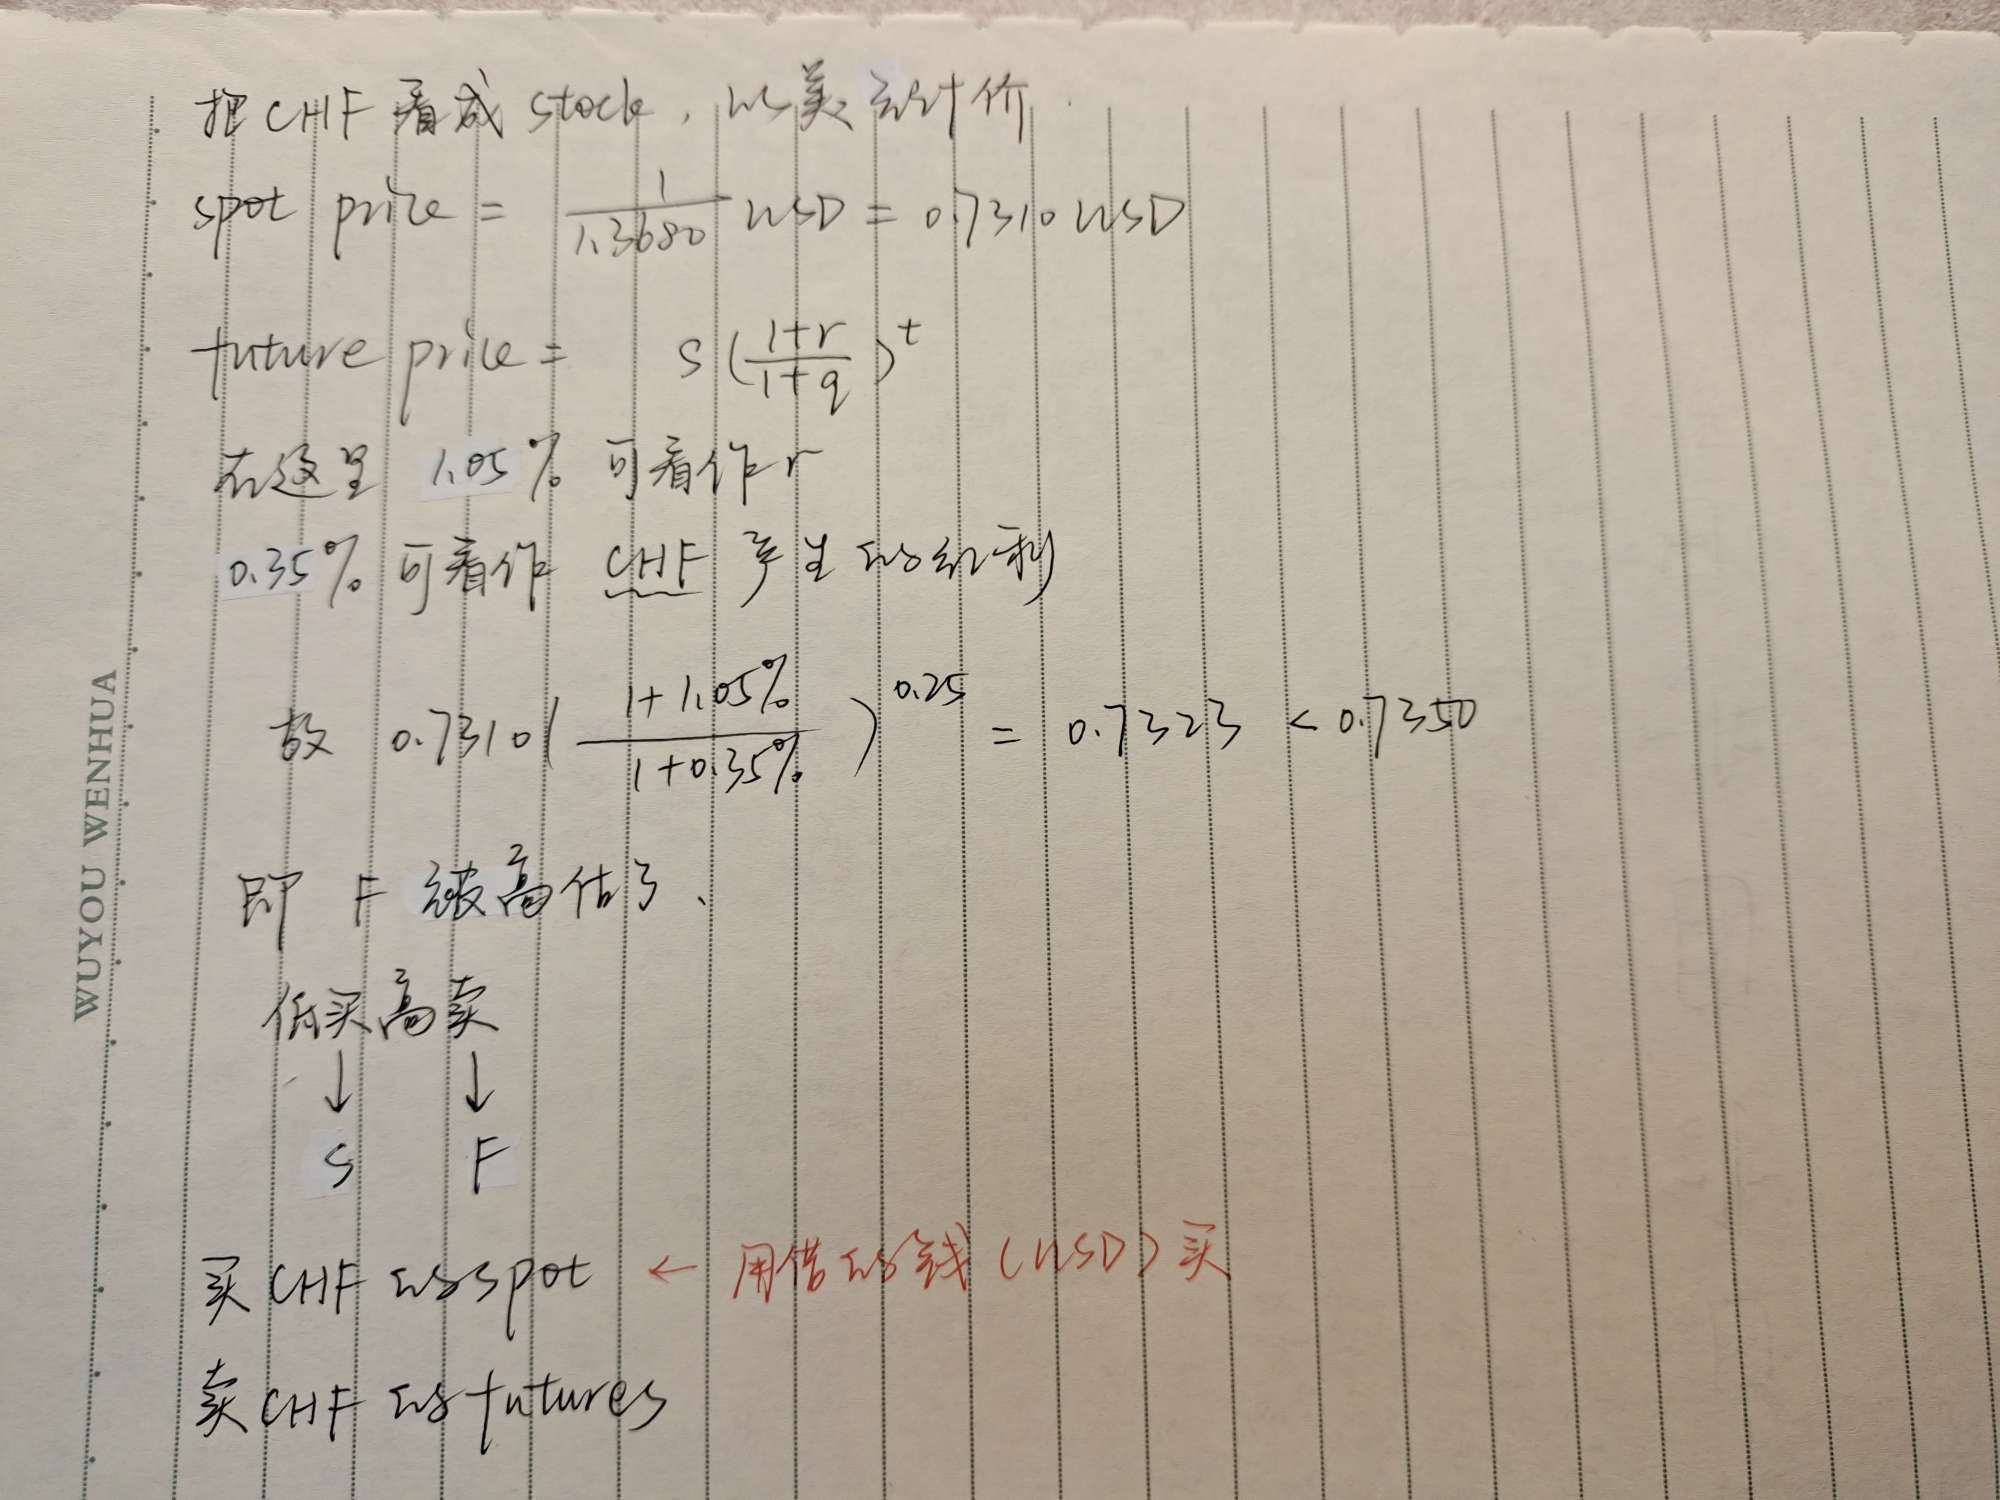 把CHF看成stock,以美元计价.
spot price = 1/1.3680 USD = 0.7310 USD
future price = S((1+r)/(1+q))^t
在这里 1.05% 可看作r
0.35% 可看作 CHF 产生的红利
故 0.7310((1+1.05%)/(1+0.35%))^0.25 = 0.7323 < 0.7350
即 F 被高估了、
低买高卖
↓ ↓
S F
买CHF的spot ← 用借的钱(USD)买
卖CHF的futures
WUYOU WENHUA